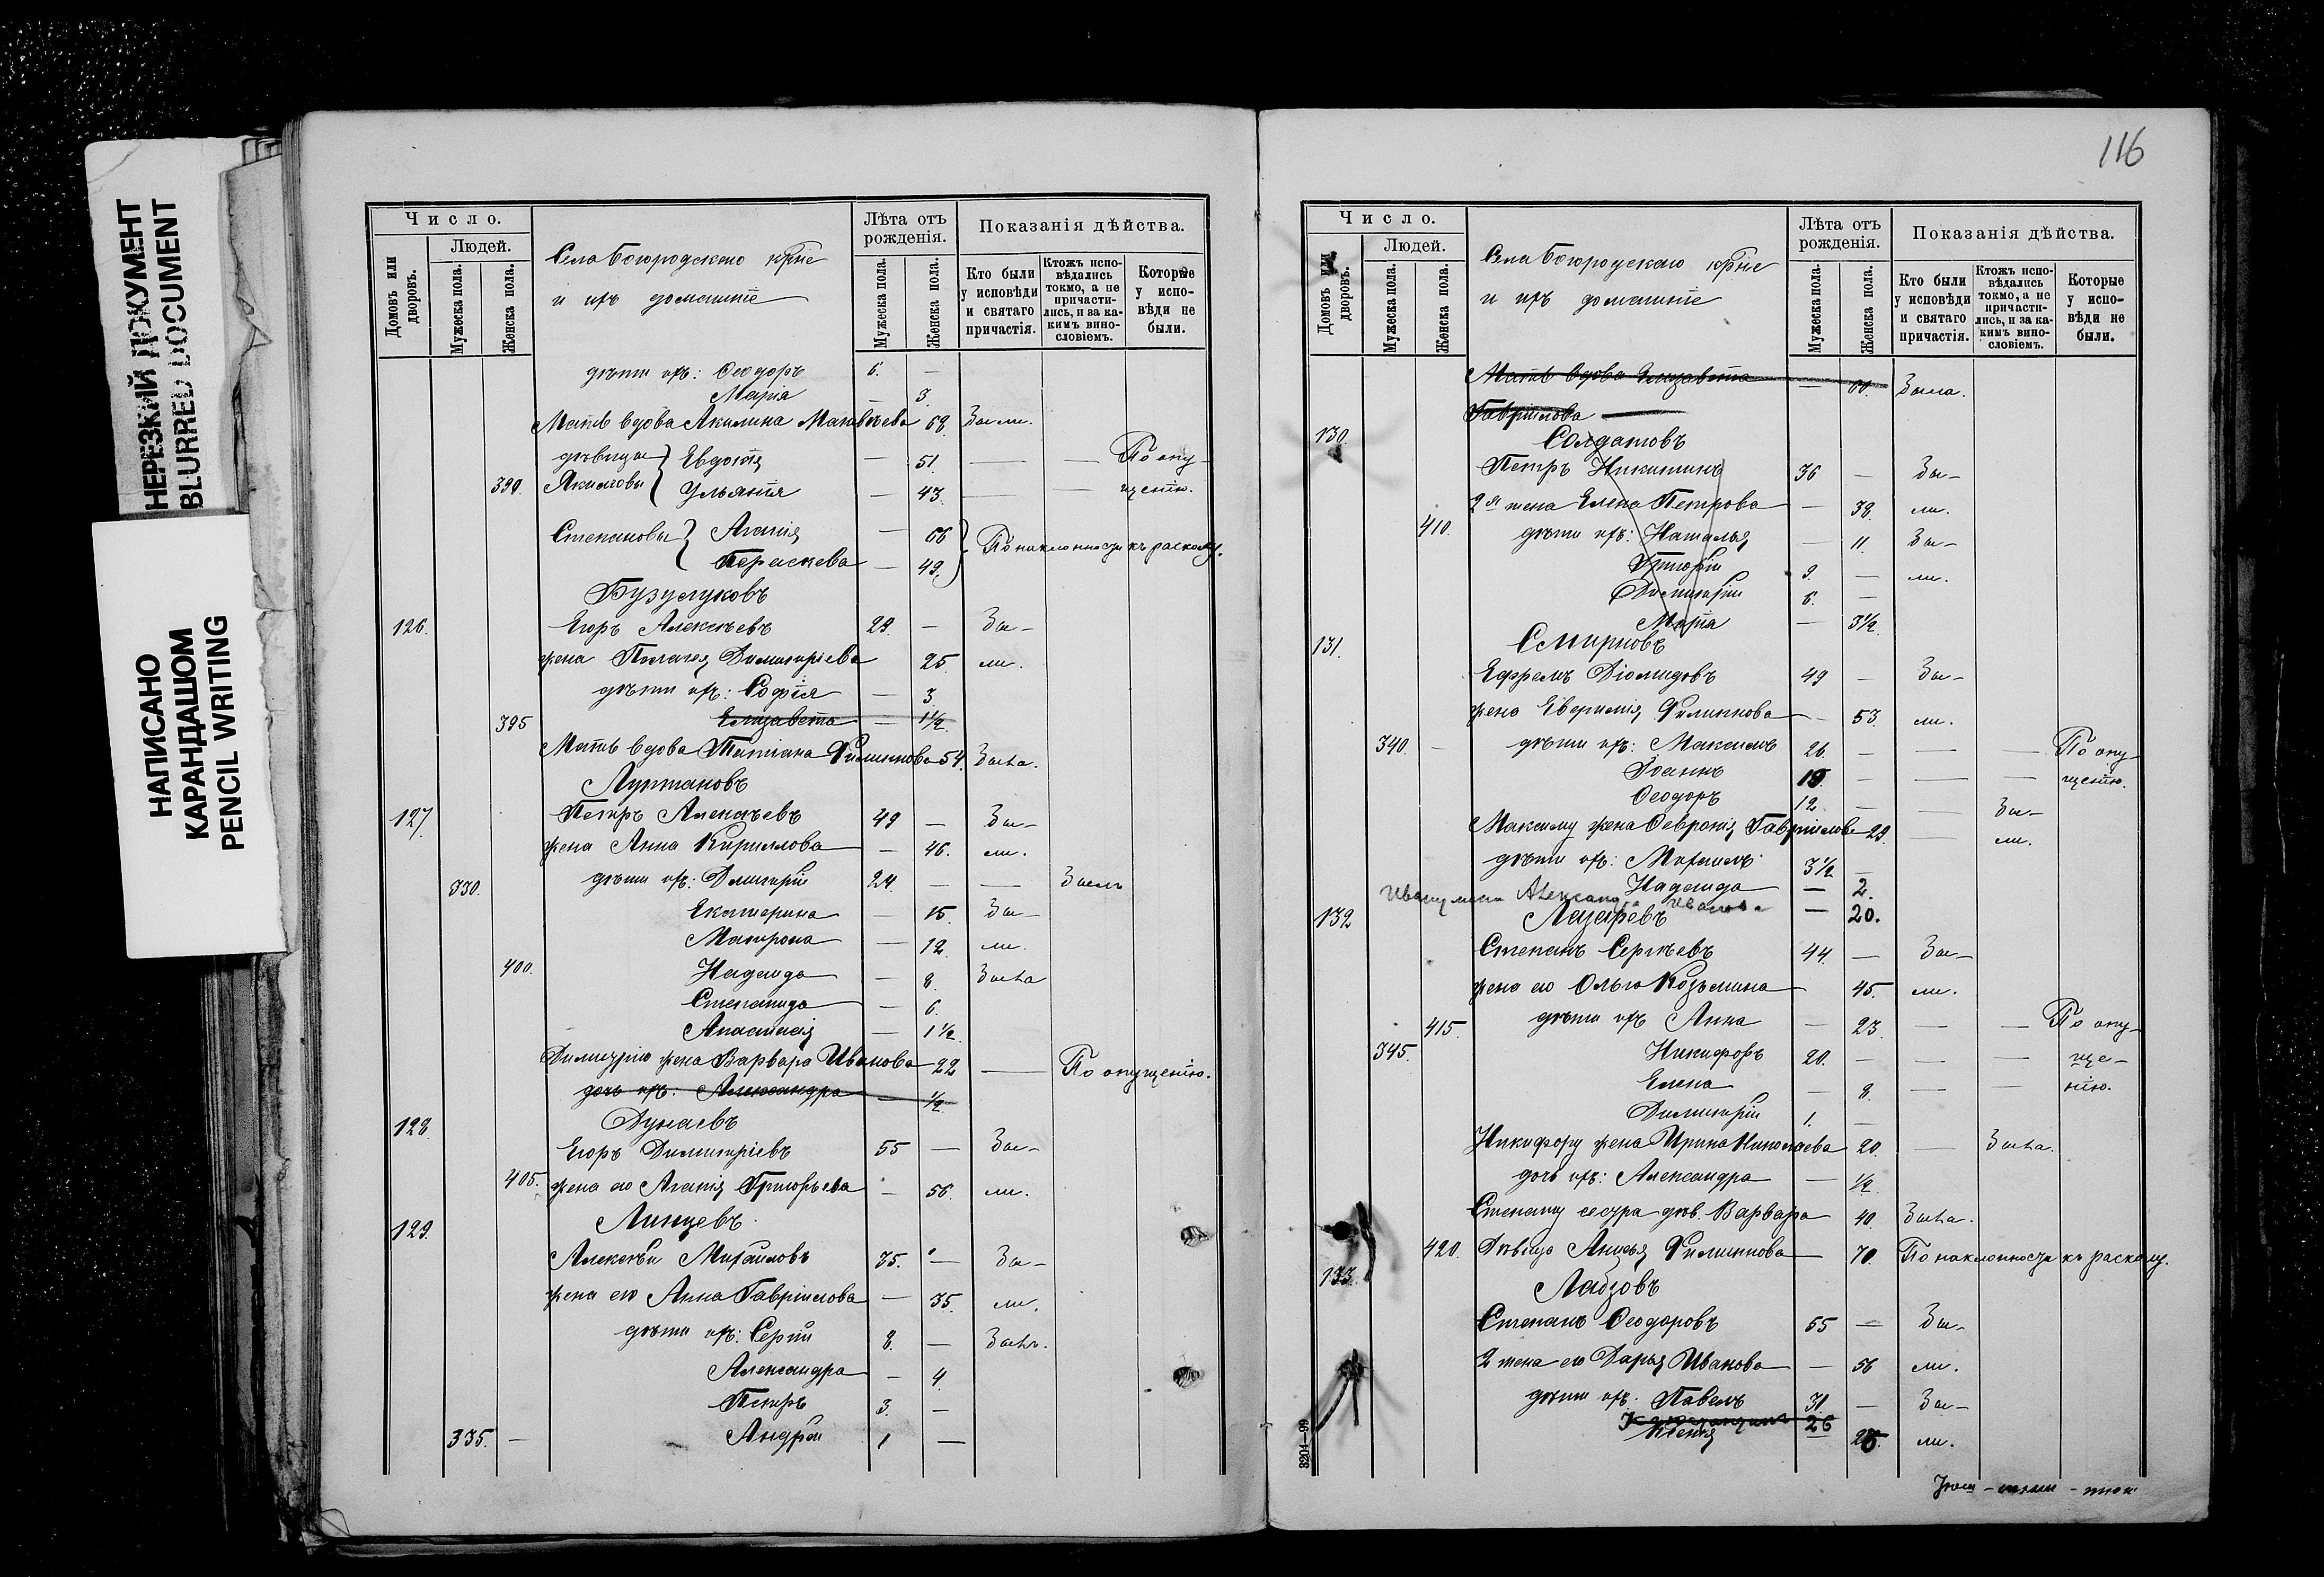 НЕРЕЗКИЙ ДОКУМЕНТ
BLURRED DOCUMENT
НАПИСАНО
КАРАНДАШОМ
PENCIL WRITING
Число.
Людей.
Домовъ или дворовъ.
Мужеска пола.
Женска пола.
Села Богородскаго кр-не
и ихъ домашніе
Лѣта отъ рожденія.
Мужеска пола.
Женска пола.
Показанія дѣйства.
Кто были у исповѣди и святаго причастія.
Ктожъ исповѣдались токмо, а не причастились, и за какимъ винословіемъ.
Которые у исповѣди не были.
дѣти ихъ: Ѳеодоръ 6. —
Марія — 3.
Мать вдова Акилина Матвѣева 68. Были.
дѣвицы Евдокія — 51. — — По опу-
390. Якимовы Ульянія — 43. — — щенію.
Степановы Агапія — 66
Параскева — 49. По наклонности къ расколу.
Бузулуковъ
126. Егоръ Алексѣевъ 29. — Бы-
жена Пелагея Димитріева 25 ли.
дѣти ихъ: Софія — 3.
395 Елизавета — 1½
Мать вдова Татіана Филиппова 54. Была.
127.
Петръ Алексѣевъ 49 — Бы-
жена Анна Кириллова — 46. ли.
330. дѣти ихъ: Димитрій 24. — — Былъ
Екатерина — 15. Бы-
Матрона — 12. ли.
400. Надежда — 8. Была
Степанида — 6.
Анастасія — 1½
Димитрію жена Варвара Иванова 22 — По опущенію.
дочь ихъ: Александра — ½
128. Дунаевъ
Егоръ Димитріевъ 55 — Бы-
405. жена его Агапія Григорьева — 56. ли.
129. Линцевъ
Алексѣй Михайловъ 35. — Бы-
жена его Анна Гавріилова — 35. ли.
дѣти ихъ: Сергій 8. — Былъ.
Александра — 4.
Петръ 3. —
335. — Андрей 1 —
116
Число.
Людей.
Домовъ или дворовъ.
Мужеска пола.
Женска пола.
Села Богородскаго кр-не
и ихъ домашніе
Лѣта отъ рожденія.
Мужеска пола.
Женска пола.
Показанія дѣйства.
Кто были у исповѣди и святаго причастія.
Ктожъ исповѣдались токмо, а не причастились, и за какимъ винословіемъ.
Которые у исповѣди не были.
Мать вдова Елизавета — Была.
Гавріилова
130. Солдатовъ
Петръ Никитинъ 36 — Бы-
2я жена Елена Петрова — 38. ли.
410. дѣти ихъ: Наталья — 11. Бы-
Григорій 9. — ли.
Димитрій 6. —
Марѳа — 3½
131. Смирновъ
Ефремъ Діомидовъ 49 — Бы-
жена Евфимія Филиппова — 53. ли.
340. — дѣти ихъ: Максимъ 26. — — — По опу-
Іоаннъ — — — щенію.
Ѳеодоръ 12 — — Бы-
Максиму жена Ѳевронія Гавріилова 29. — ли.
дѣти ихъ: Михаилъ 3½ —
Надежда — 2.
Ивану жена Александра Иванова — 20.
132 Лазаревъ
Степанъ Сергѣевъ 44 — Бы-
жена его Ольга Козьмина — 45. ли.
415. дѣти ихъ Анна — 23. — — По опу-
345. Никифоръ 20. — — — ще-
Елена — 8. — — нію.
Димитрій 1. —
Никифору жена Ирина Николаева 20. — Была.
дочь ихъ: Александра — ½
Степану сестра дѣв. Варвара 40. Была.
420. Дѣвица Анисья Филиппова — 70. По наклонности къ расколу.
133. Лабзовъ
Степанъ Ѳеодоровъ 55 — Бы-
2 жена его Дарья Иванова — 56 ли.
дѣти ихъ: Павелъ 31. — Бы-
26
Ксенія ли.
3204—99